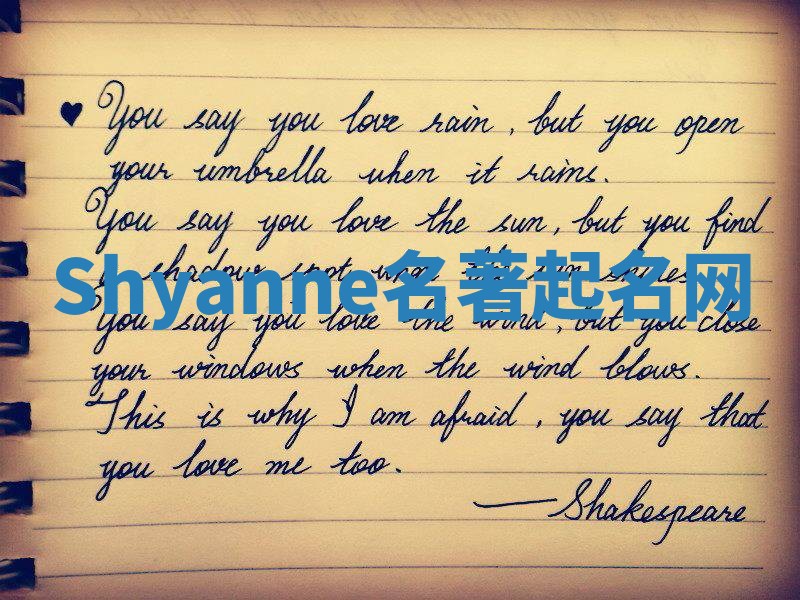 ♥ You say you love rain, but you open
your umbrella when it rains.
You say you love the sun, but you find
a shadow spot when the sun shines.
Shyanne名著起名网
You say you love the wind, but you close
your windows when the wind blows.
This is why I am afraid, you say that
you love me too.
— Shakespeare